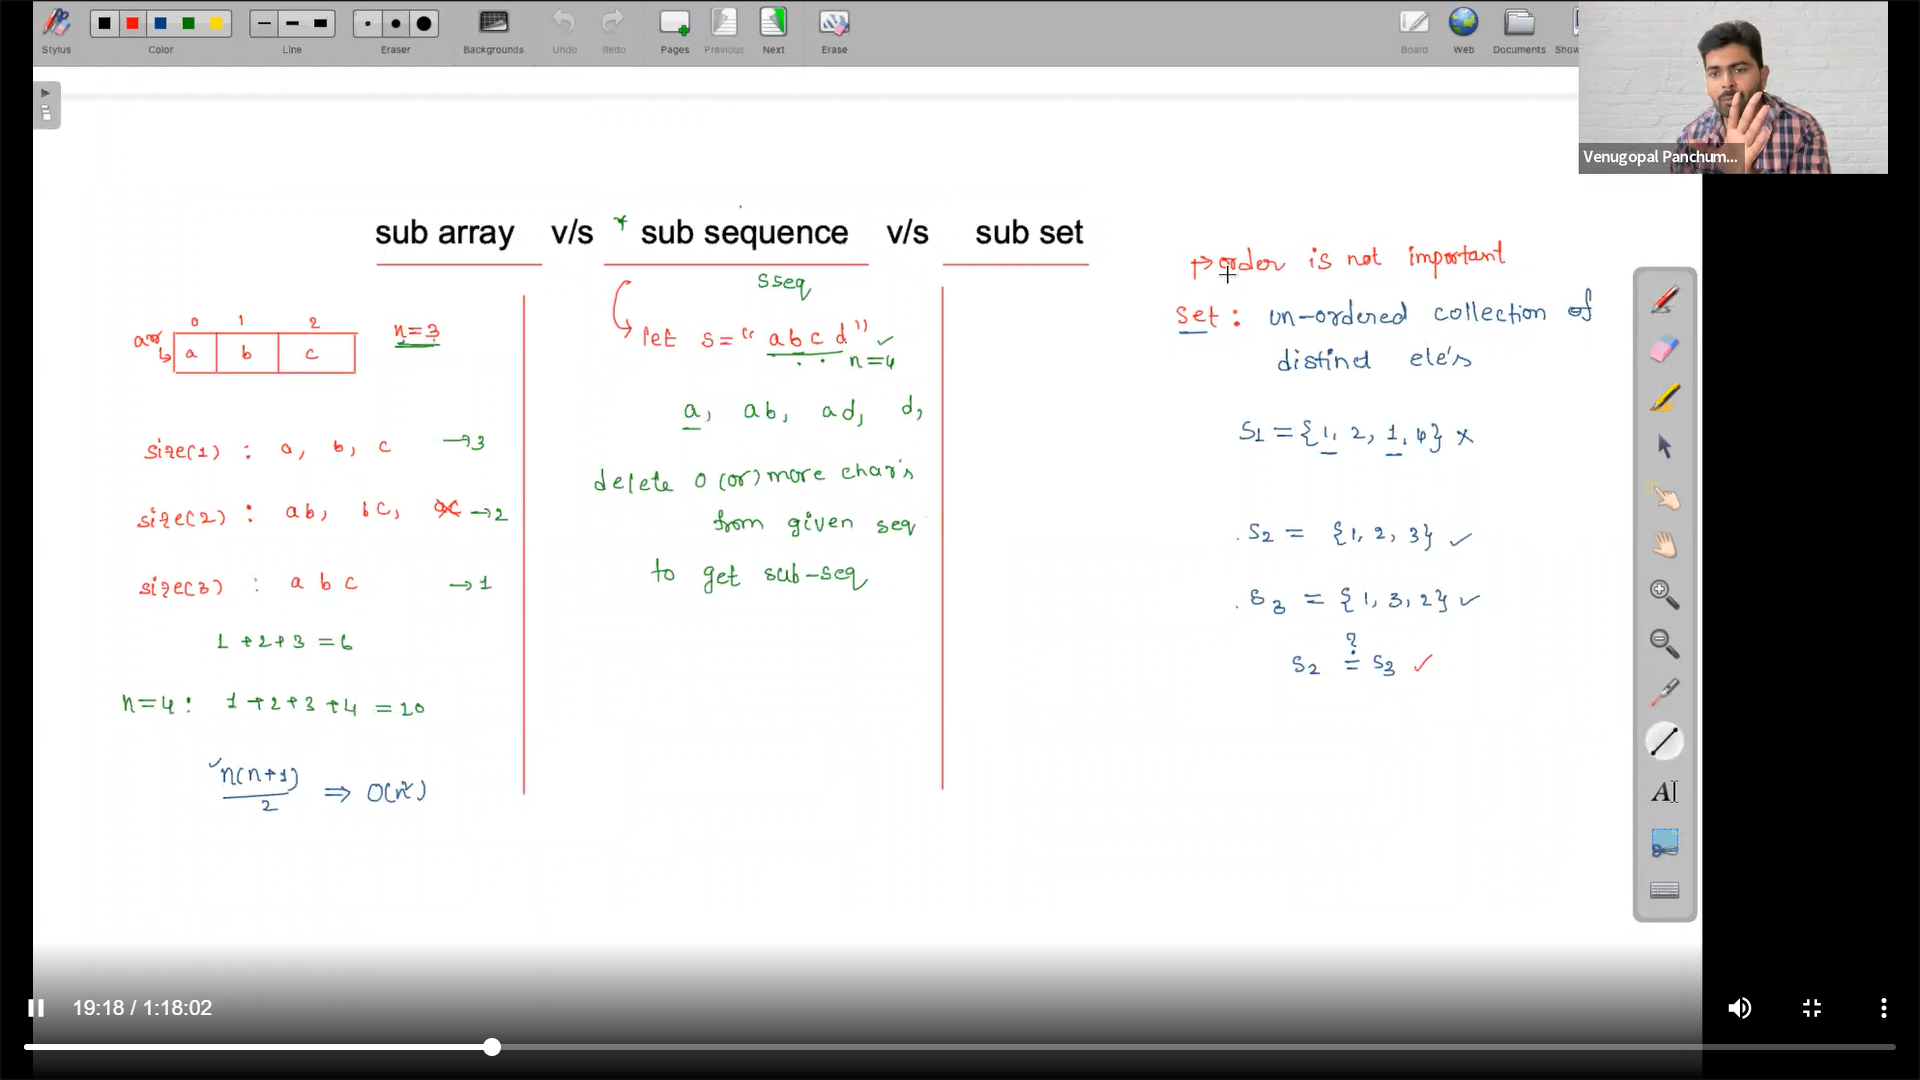 Stylus
Color
Line
Eraser
Backgrounds
Undo
Redo
Pages
Previous
Next
Erase
Board
Web
Documents
Show
Venugopal Panchum...
sub array v/s * sub sequence v/s sub set
0 1 2
arr
a b c
n=3
size(1) : a, b, c →3
size(2) : ab, bc, →2
size(3) : a b c →1
1+2+3=6
n=4: 1+2+3+4=10
n(n+1)
2
⇒ O(n²)
sseq
let s="abcd" ✓
n=4
a, ab, ad, d,
delete 0 (or) more char's
from given seq
to get sub-seq
order is not important
Set: un-ordered collection of
distinct ele's
S1 = {1, 2, 1, 4} x
S2 = {1, 2, 3} ✓
S3 = {1, 3, 2} ✓
?
S2 = S3 ✓
AI
19:18 / 1:18:02